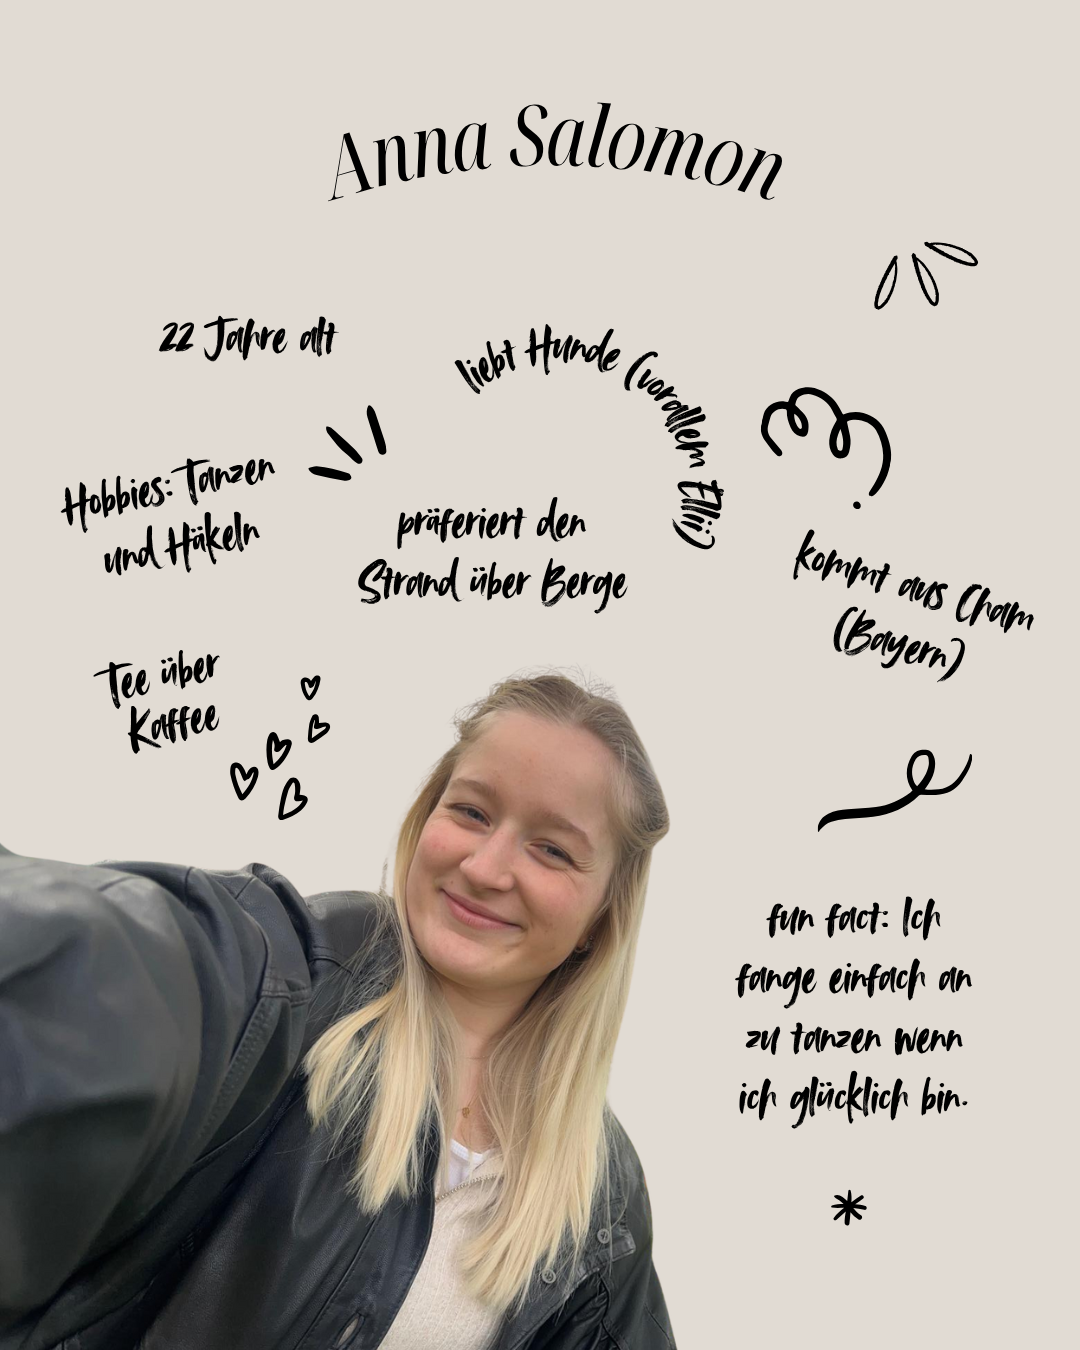 Anna Salomon
22 Jahre alt
liebt Hunde (vorallem Elli)
Hobbies: Tanzen
und Häkeln
präferiert den
Strand über Berge
kommt aus Cham
(Bayern)
Tee über
Kaffee
fun fact: Ich
fange einfach an
zu tanzen wenn
ich glücklich bin.